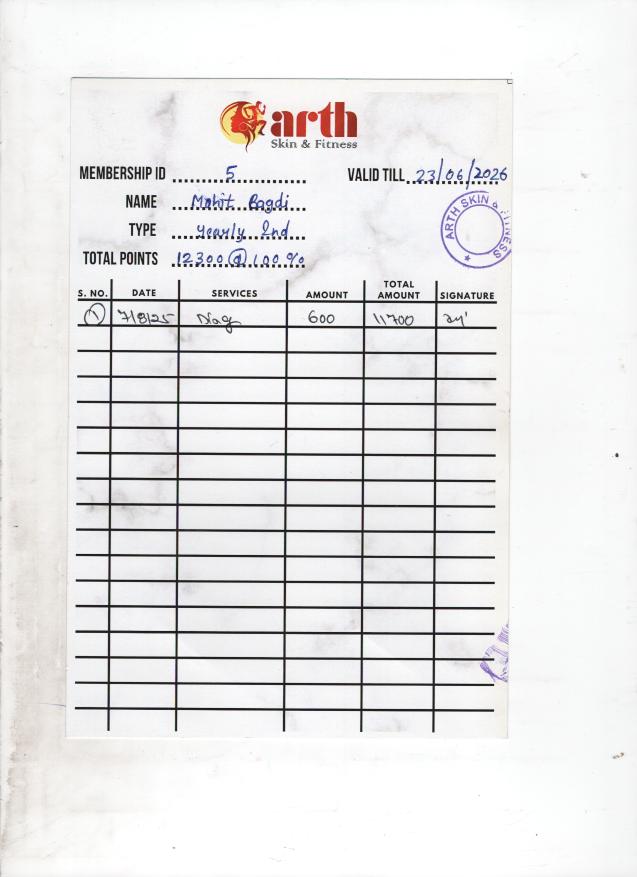 arth
Skin & Fitness
MEMBERSHIP ID 5 VALID TILL 23/06/2026
NAME Mohit Bagdi
TYPE Yearly 2nd
TOTAL POINTS 12300 @ 100 %
ARTH SKIN & FITNESS
S. NO. DATE SERVICES AMOUNT TOTAL AMOUNT SIGNATURE
1 7/8/25 600 11700